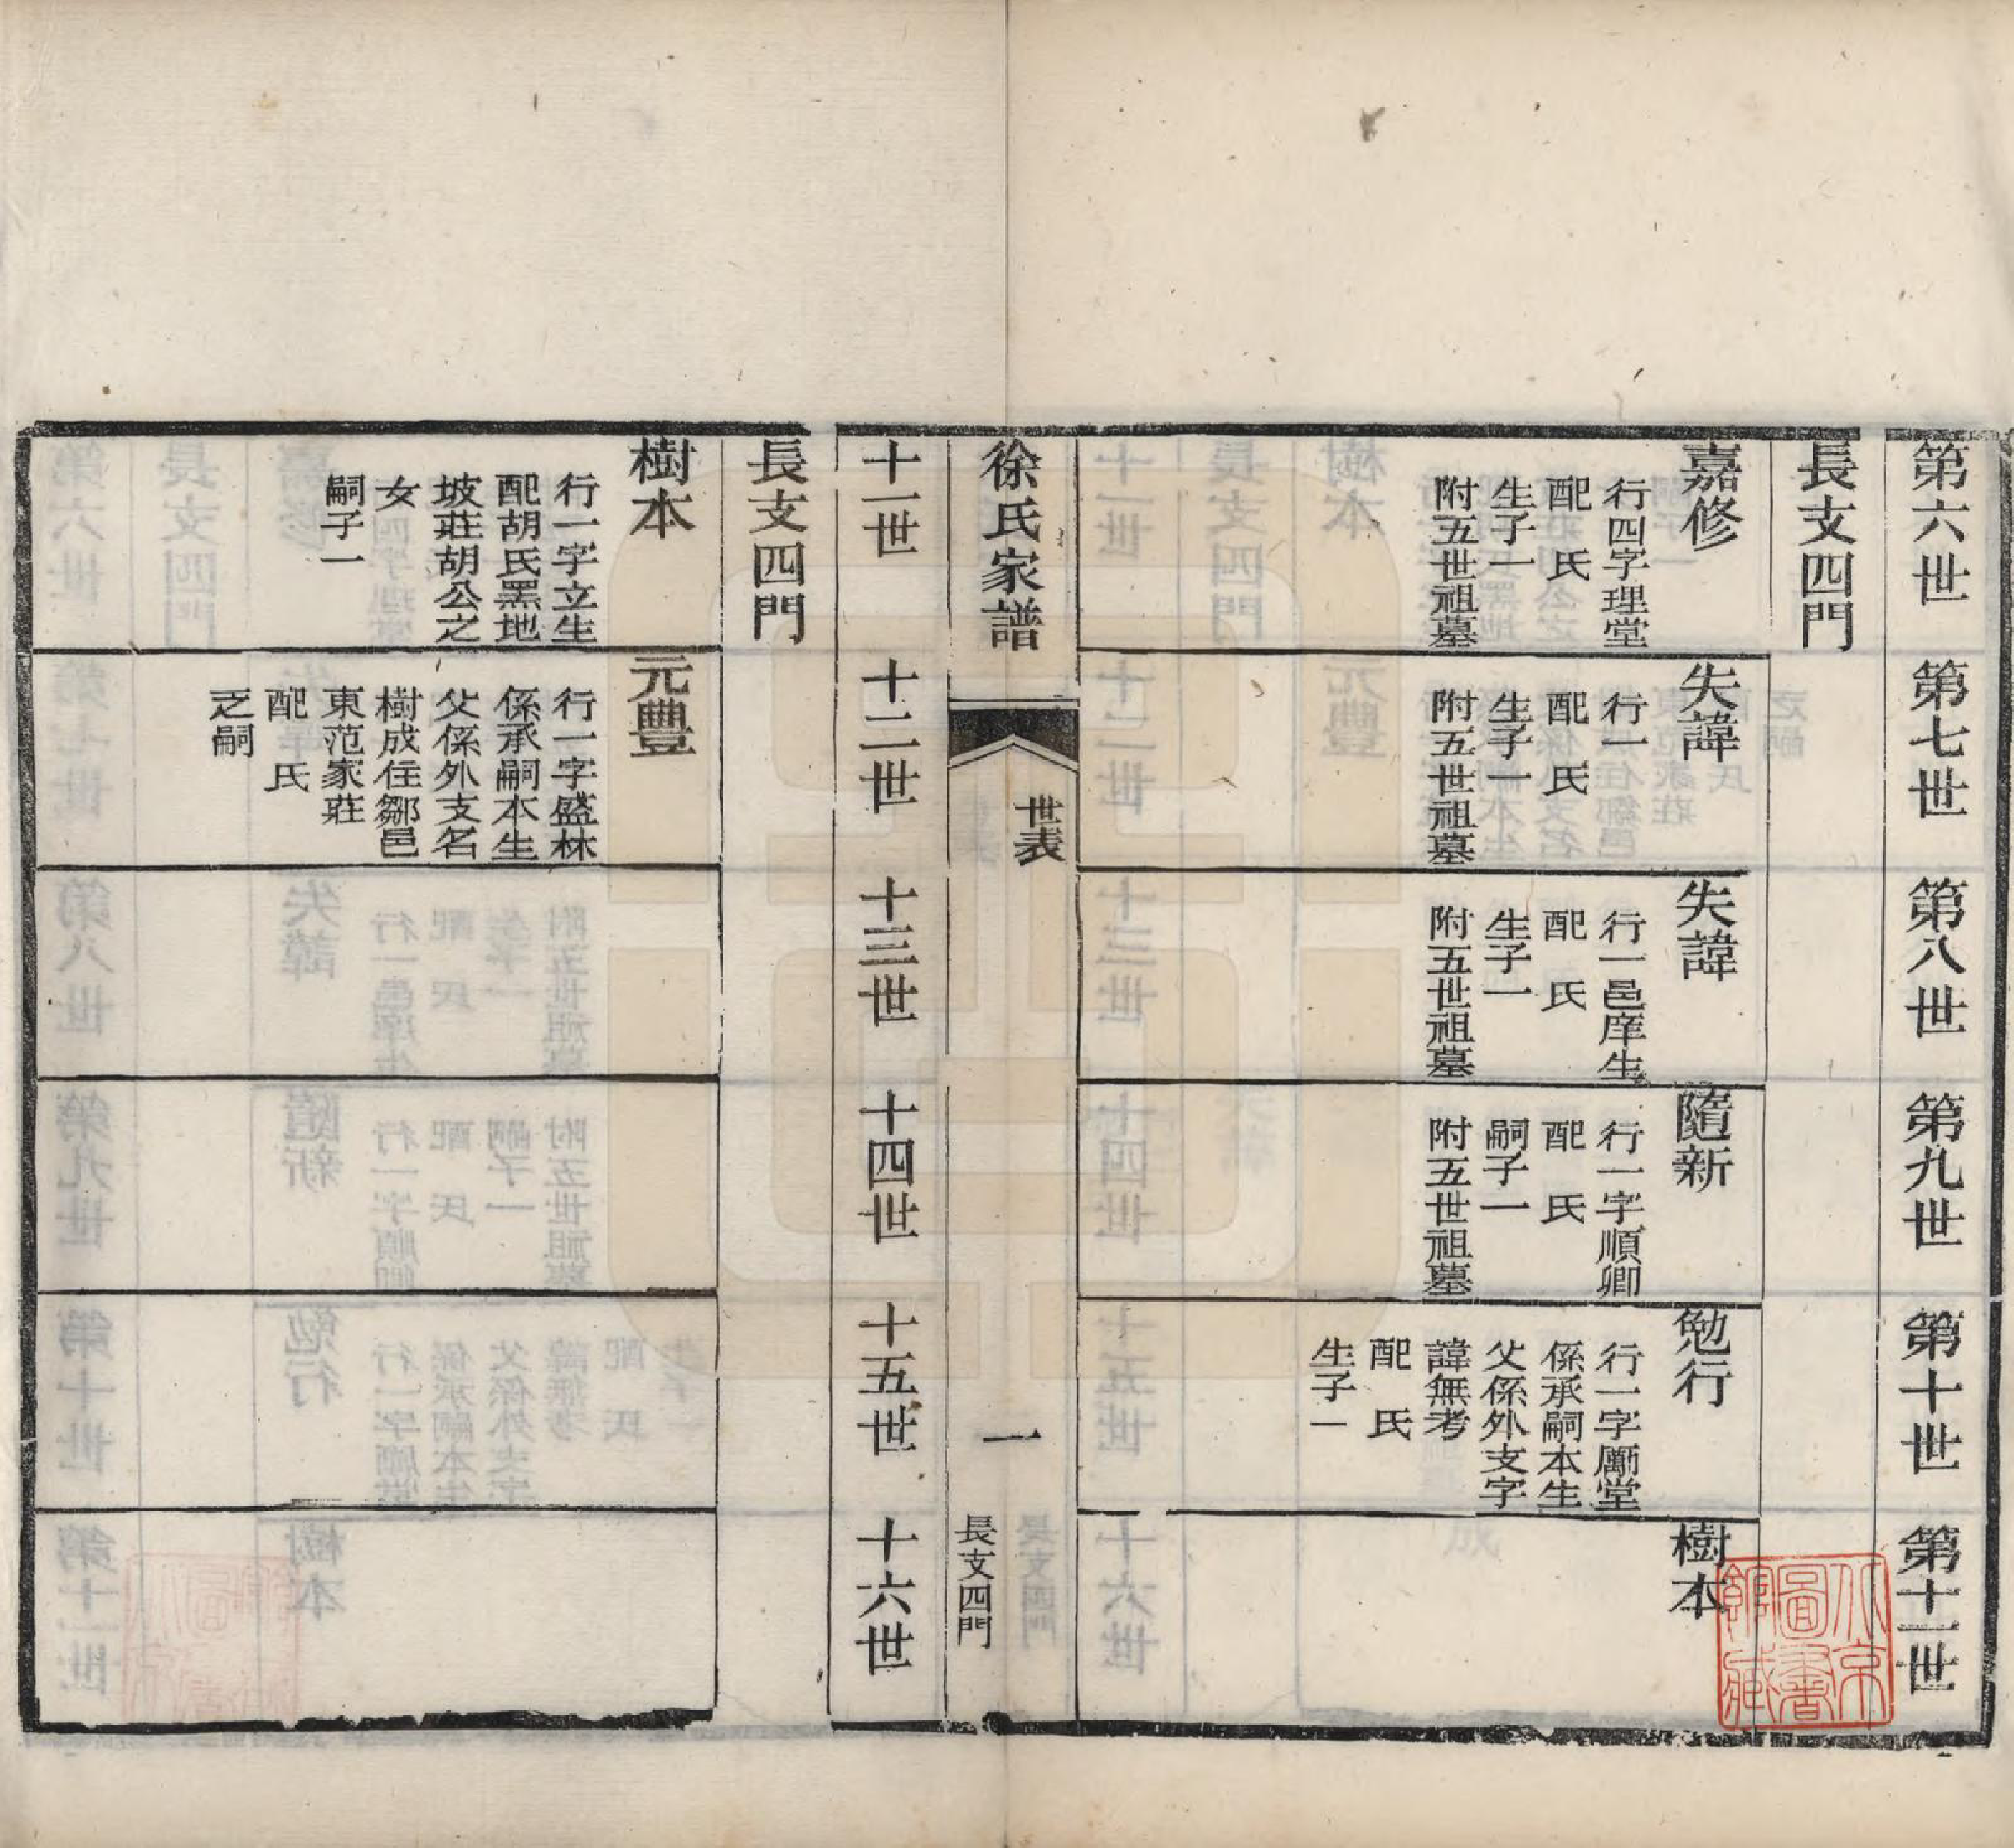 第六世
第七世
第八世
第九世
第十世
第十一世
長支四門
嘉修
行四字理堂
配　氏
生子一
附五世祖墓
失諱
行一
配　氏
生子一
附五世祖墓
失諱
行一邑庠生
配　氏
生子一
附五世祖墓
隨新
行一字順卿
配　氏
嗣子一
附五世祖墓
勉行
行一字勵堂
係承嗣本生
父係外支字
諱無考
配　氏
生子一
樹本
北京
圖書
館藏
徐氏家譜
世表
一
長支四門
十一世
十二世
十三世
十四世
十五世
十六世
長支四門
樹本
行一字立生
配胡氏黑地
坡莊胡公之
女
嗣子一
元豐
行一字盛林
係承嗣本生
父係外支名
樹成住鄒邑
東范家莊
配　氏
乏嗣